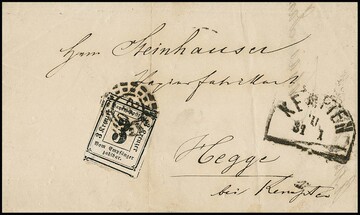 Herrn Steinhäuser
Papierfabrikant
Hegge
bei Kempten
KEMPTEN
31 1
3
Vom Empfänger
zahlbar.